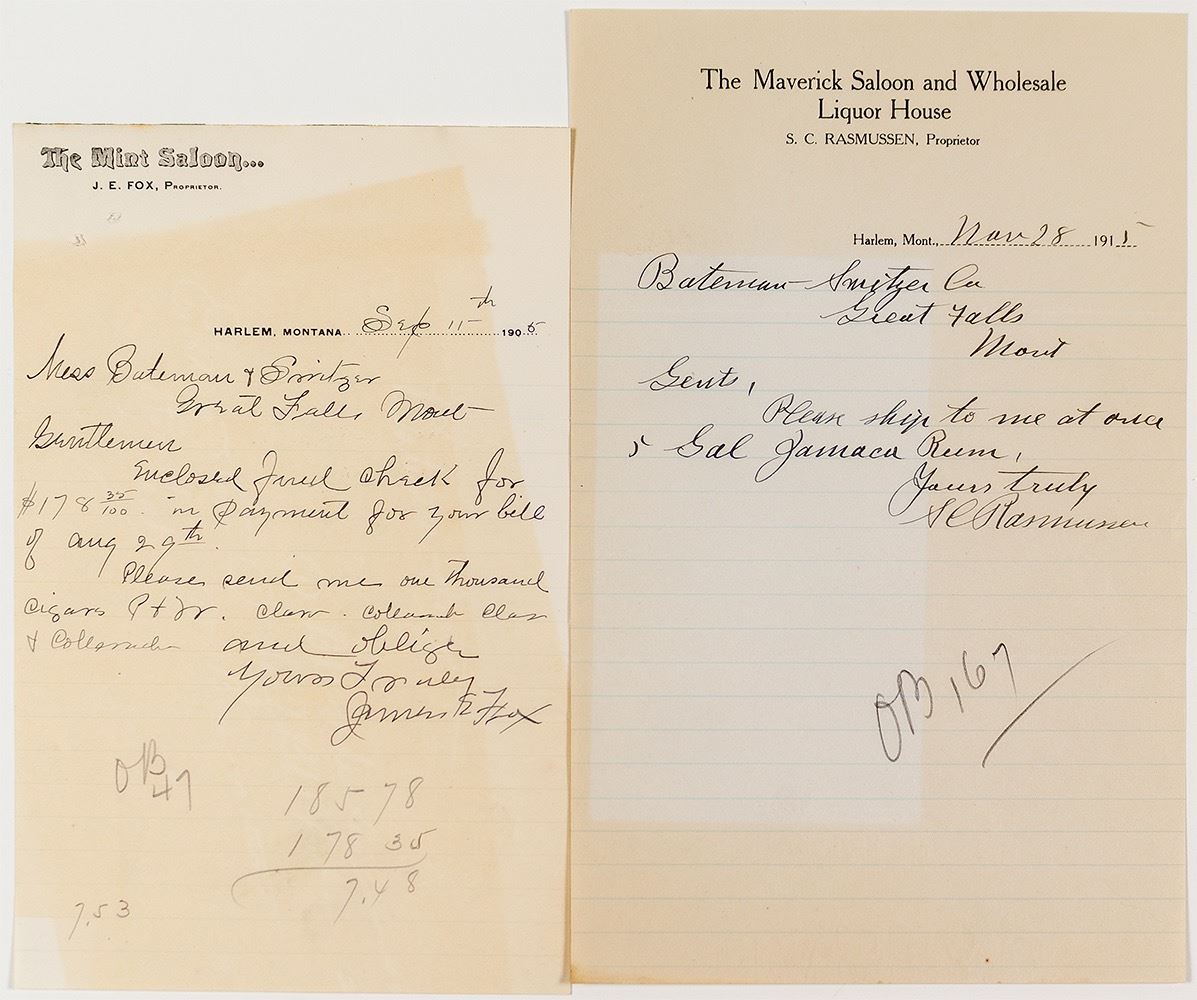 The Mint Saloon...
J. E. FOX, PROPRIETOR.
HARLEM, MONTANA. Sep 11th 1905
Mess Bateman & Switzer
Great Falls Mont
Gentlemen
Enclosed find check for
$178 35/100 in payment for your bill
of Aug 29th.
Please send me one thousand
cigars
and oblige
Yours Truly
James E Fox
OB
47
185 78
178 35
7.48
7.53
The Maverick Saloon and Wholesale
Liquor House
S. C. RASMUSSEN, Proprietor
Harlem, Mont., Nov 28 1915
Bateman Switzer Co
Great Falls
Mont
Gents,
Please ship to me at once
5 Gal Jamaca Rum,
Yours truly
S C Rasmussen
OB 167